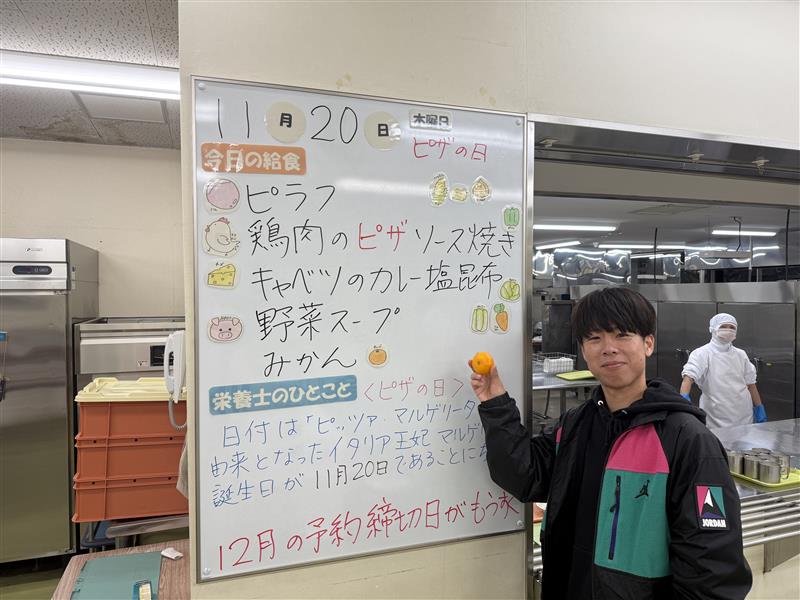 11月20日 木曜日
ピザの日
今日の給食
ピラフ
鶏肉のピザソース焼き
キャベツのカレー塩昆布
野菜スープ
みかん
栄養士のひとこと 〈ピザの日〉
日付は「ピッツァ・マルゲリータ
由来となったイタリア王妃 マルゲリ
誕生日が 11月20日であることに
12月の予約締切日がもうす
JORDAN